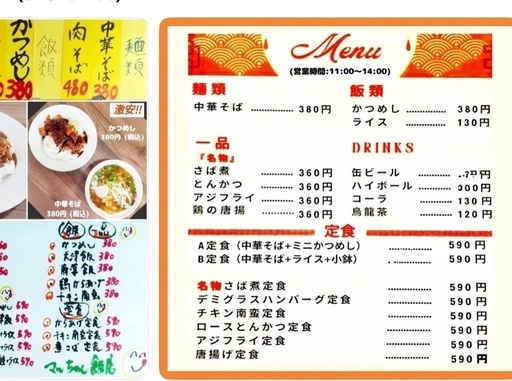 麺類
中華そば 380
肉そば 480
飯類
かつめし 380
激安!!
かつめし
380円(税込)
中華そば
380円(税込)
飯 一品
かつめし 380
天津飯 380
麻婆飯 380
鶏からあげ 380
チキン南蛮 380
定食
からあげ定食 590
チキン南蛮定食 590
さば定食 590
Menu
(営業時間:11:00〜14:00)
麺類
中華そば 380円
飯類
かつめし 380円
ライス 130円
一品
『名物』
さば煮 360円
とんかつ 360円
アジフライ 360円
鶏の唐揚 360円
DRINKS
缶ビール
ハイボール 300円
コーラ 130円
烏龍茶 120円
定食
A定食(中華そば+ミニかつめし) 590円
B定食(中華そば+ライス+小鉢) 590円
名物さば煮定食 590円
デミグラスハンバーグ定食 590円
チキン南蛮定食 590円
ロースとんかつ定食 590円
アジフライ定食 590円
唐揚げ定食 590円